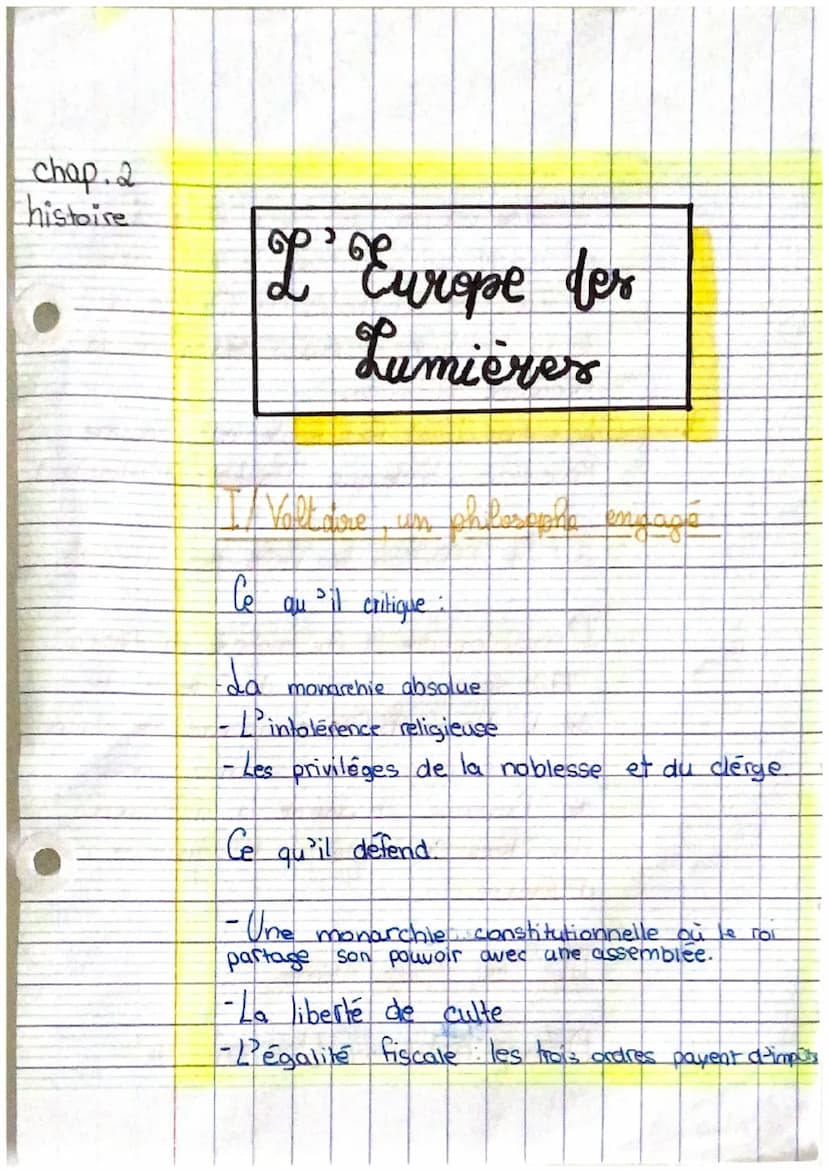 chap.2
histoire
L'Europe des
Lumières
I/ Voltaire, un philosophe engagé
Ce qu'il critique :
-La monarchie absolue
- L'intolérence religieuse
- Les priviléges de la noblesse et du clérge.
Ce qu'il défend:
- Une monarchie constitutionnelle où le roi
partage son pouvoir avec une assemblée.
-La liberté de culte
-L'égalité fiscale : les trois ordres payent d'impôts